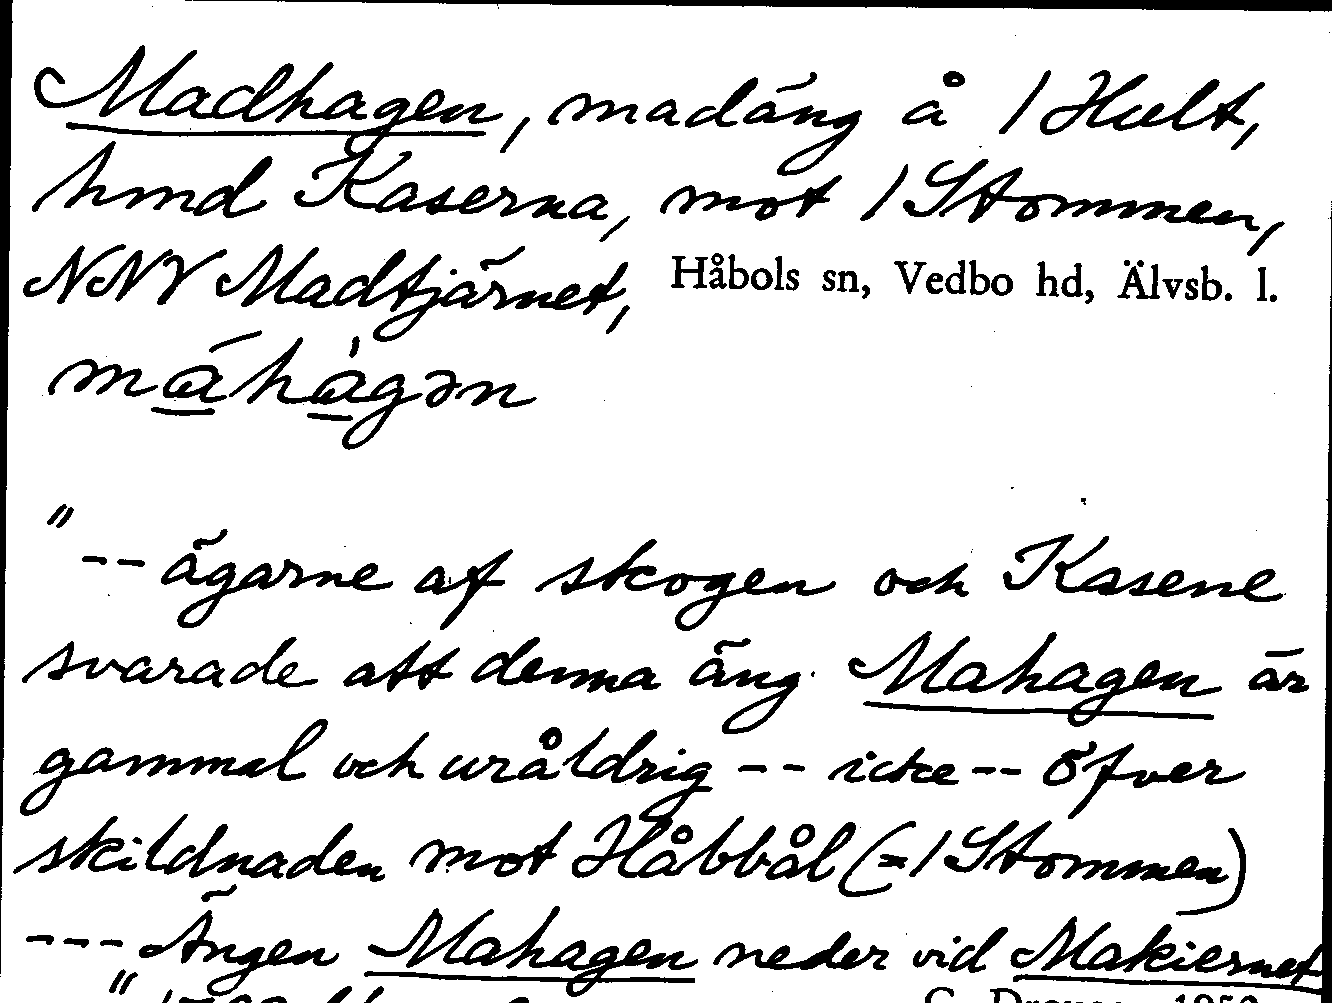 Madhagen, madäng å 1 Hult,
hmd Kaserna, mot 1 Stommen,
NNV Madtjärnet, Håbols sn, Vedbo hd, Älvsb. l.
máhàgən
"-- ägarne af skogen och Kasene
svarade att denna äng Mahagen är
gammal och uråldrig -- icke -- öfver
skildnaden mot Håbbål (= 1 Stommen)
--- Ängen Mahagen neder vid Makiernet
"